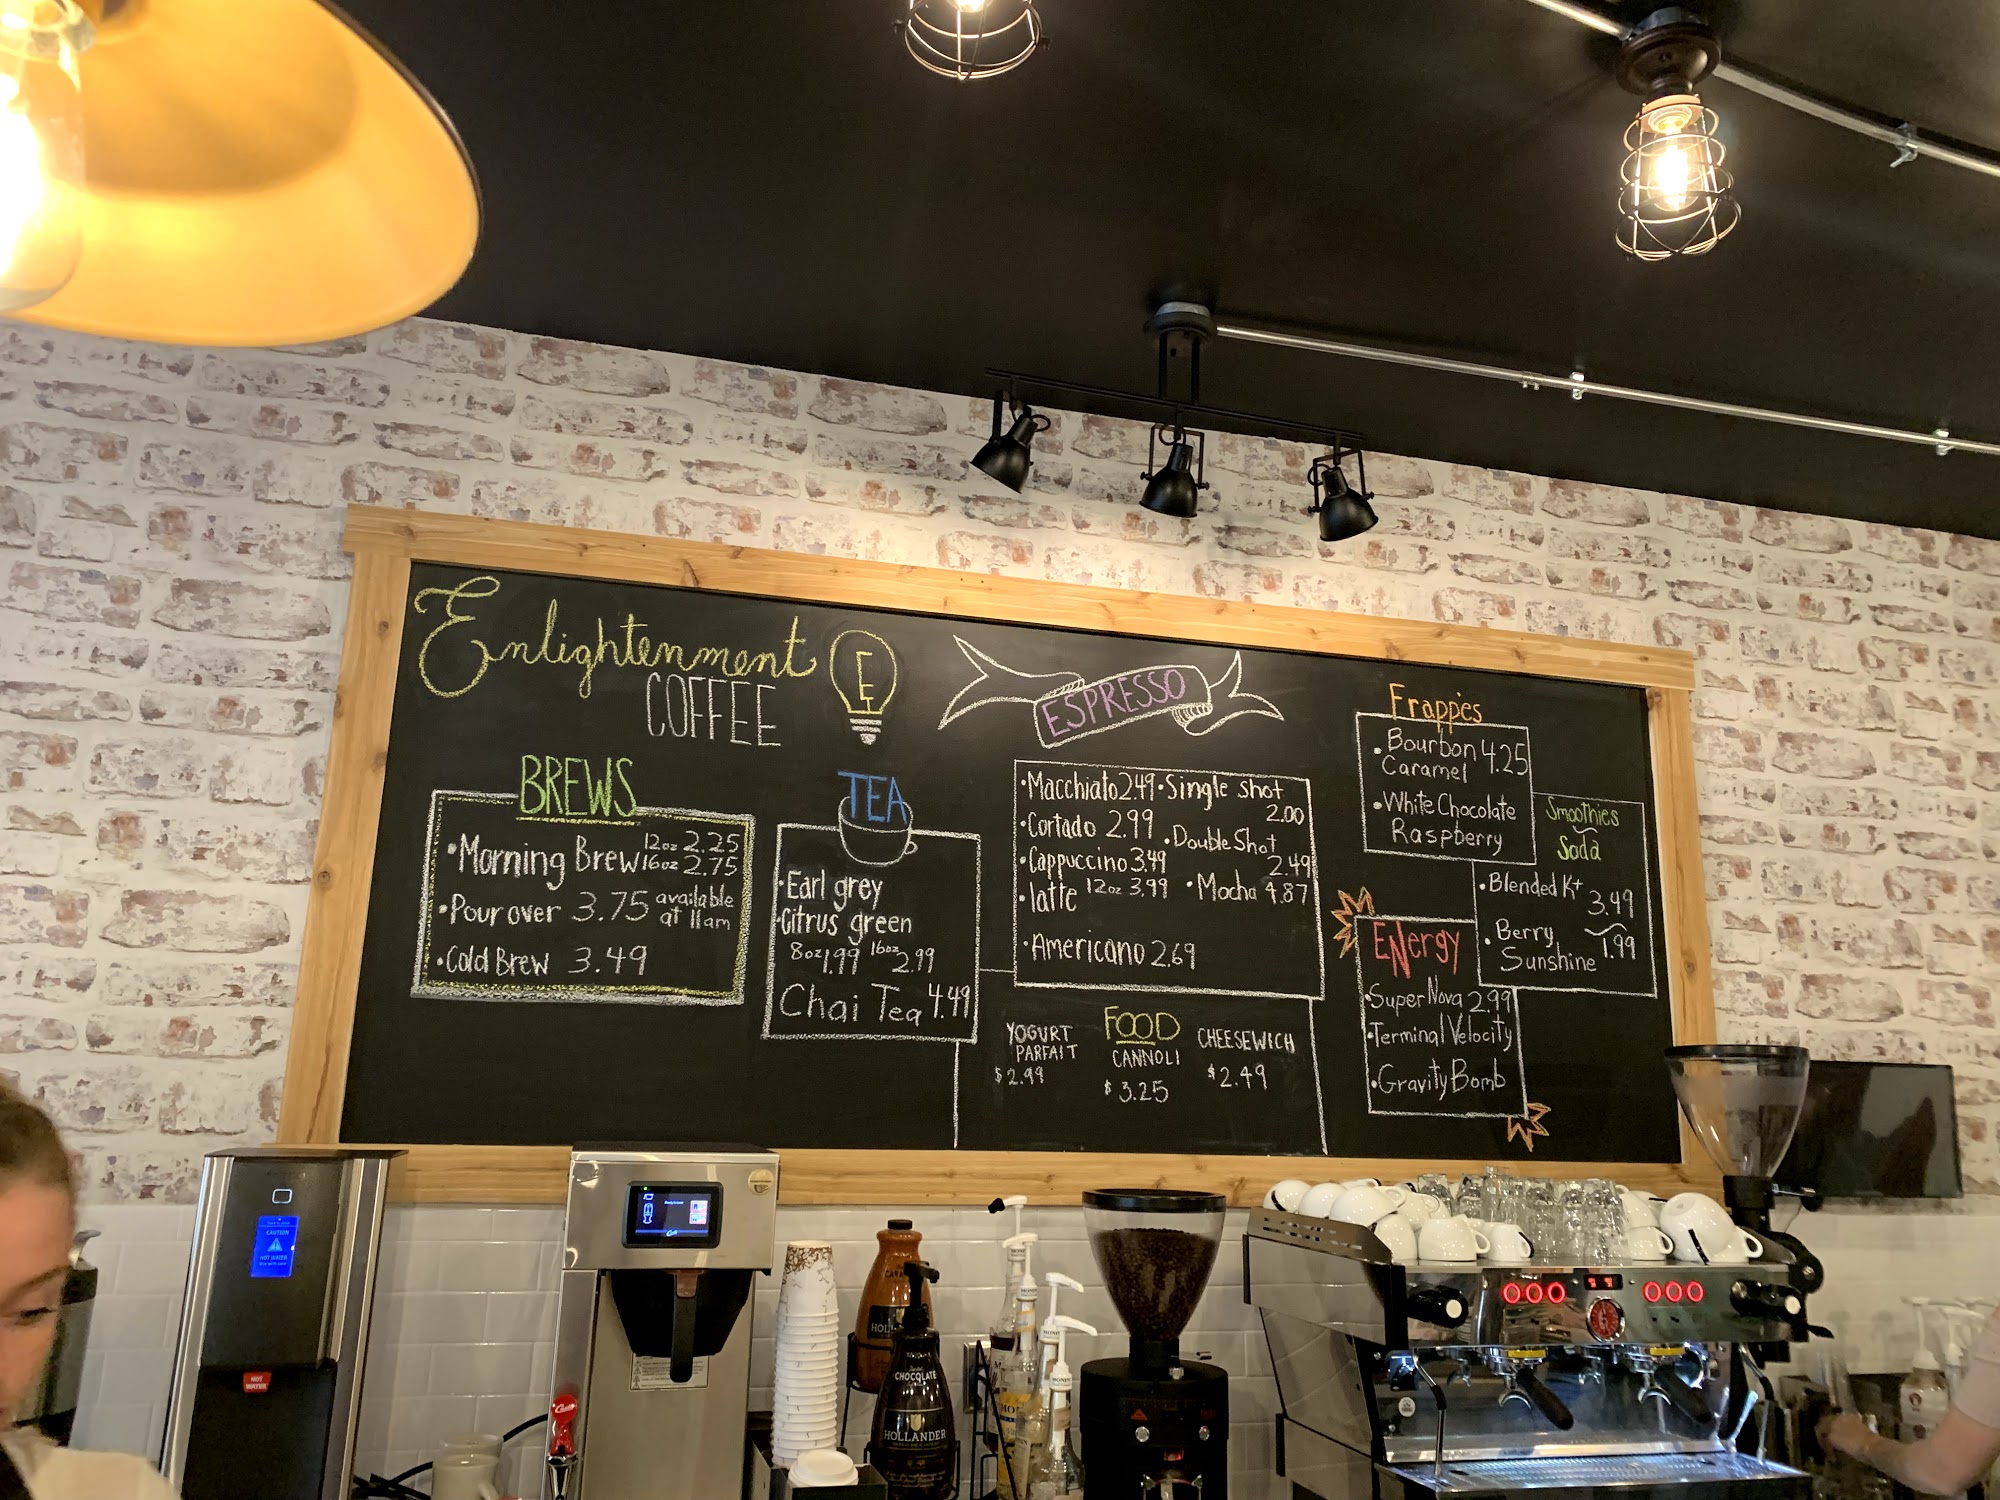 Enlightenment
COFFEE
E
BREWS
•Morning Brew 12oz 2.25
16oz 2.75
•Pour over 3.75 available
at 11am
•Cold Brew 3.49
TEA
•Earl grey
•Citrus green
8oz 1.99 16oz 2.99
Chai Tea 4.49
ESPRESSO
•Macchiato 2.49 •Single shot
2.00
•Cortado 2.99 •Double Shot
2.49
•Cappuccino 3.49
•latte 12oz 3.99 •Mocha 4.87
•Americano 2.69
FOOD
YOGURT
PARFAIT
$2.99
CANNOLI
$3.25
CHEESEWICH
$2.49
Frappés
•Bourbon 4.25
Caramel
•White Chocolate
Raspberry
Smoothies
Soda
•Blended K+
3.49
•Berry
Sunshine 1.99
ENergy
•Super Nova 2.99
•Terminal Velocity
•Gravity Bomb
CAUTION
HOT WATER
HOT
WATER
Curtis
CHOCOLATE
HOLLANDER